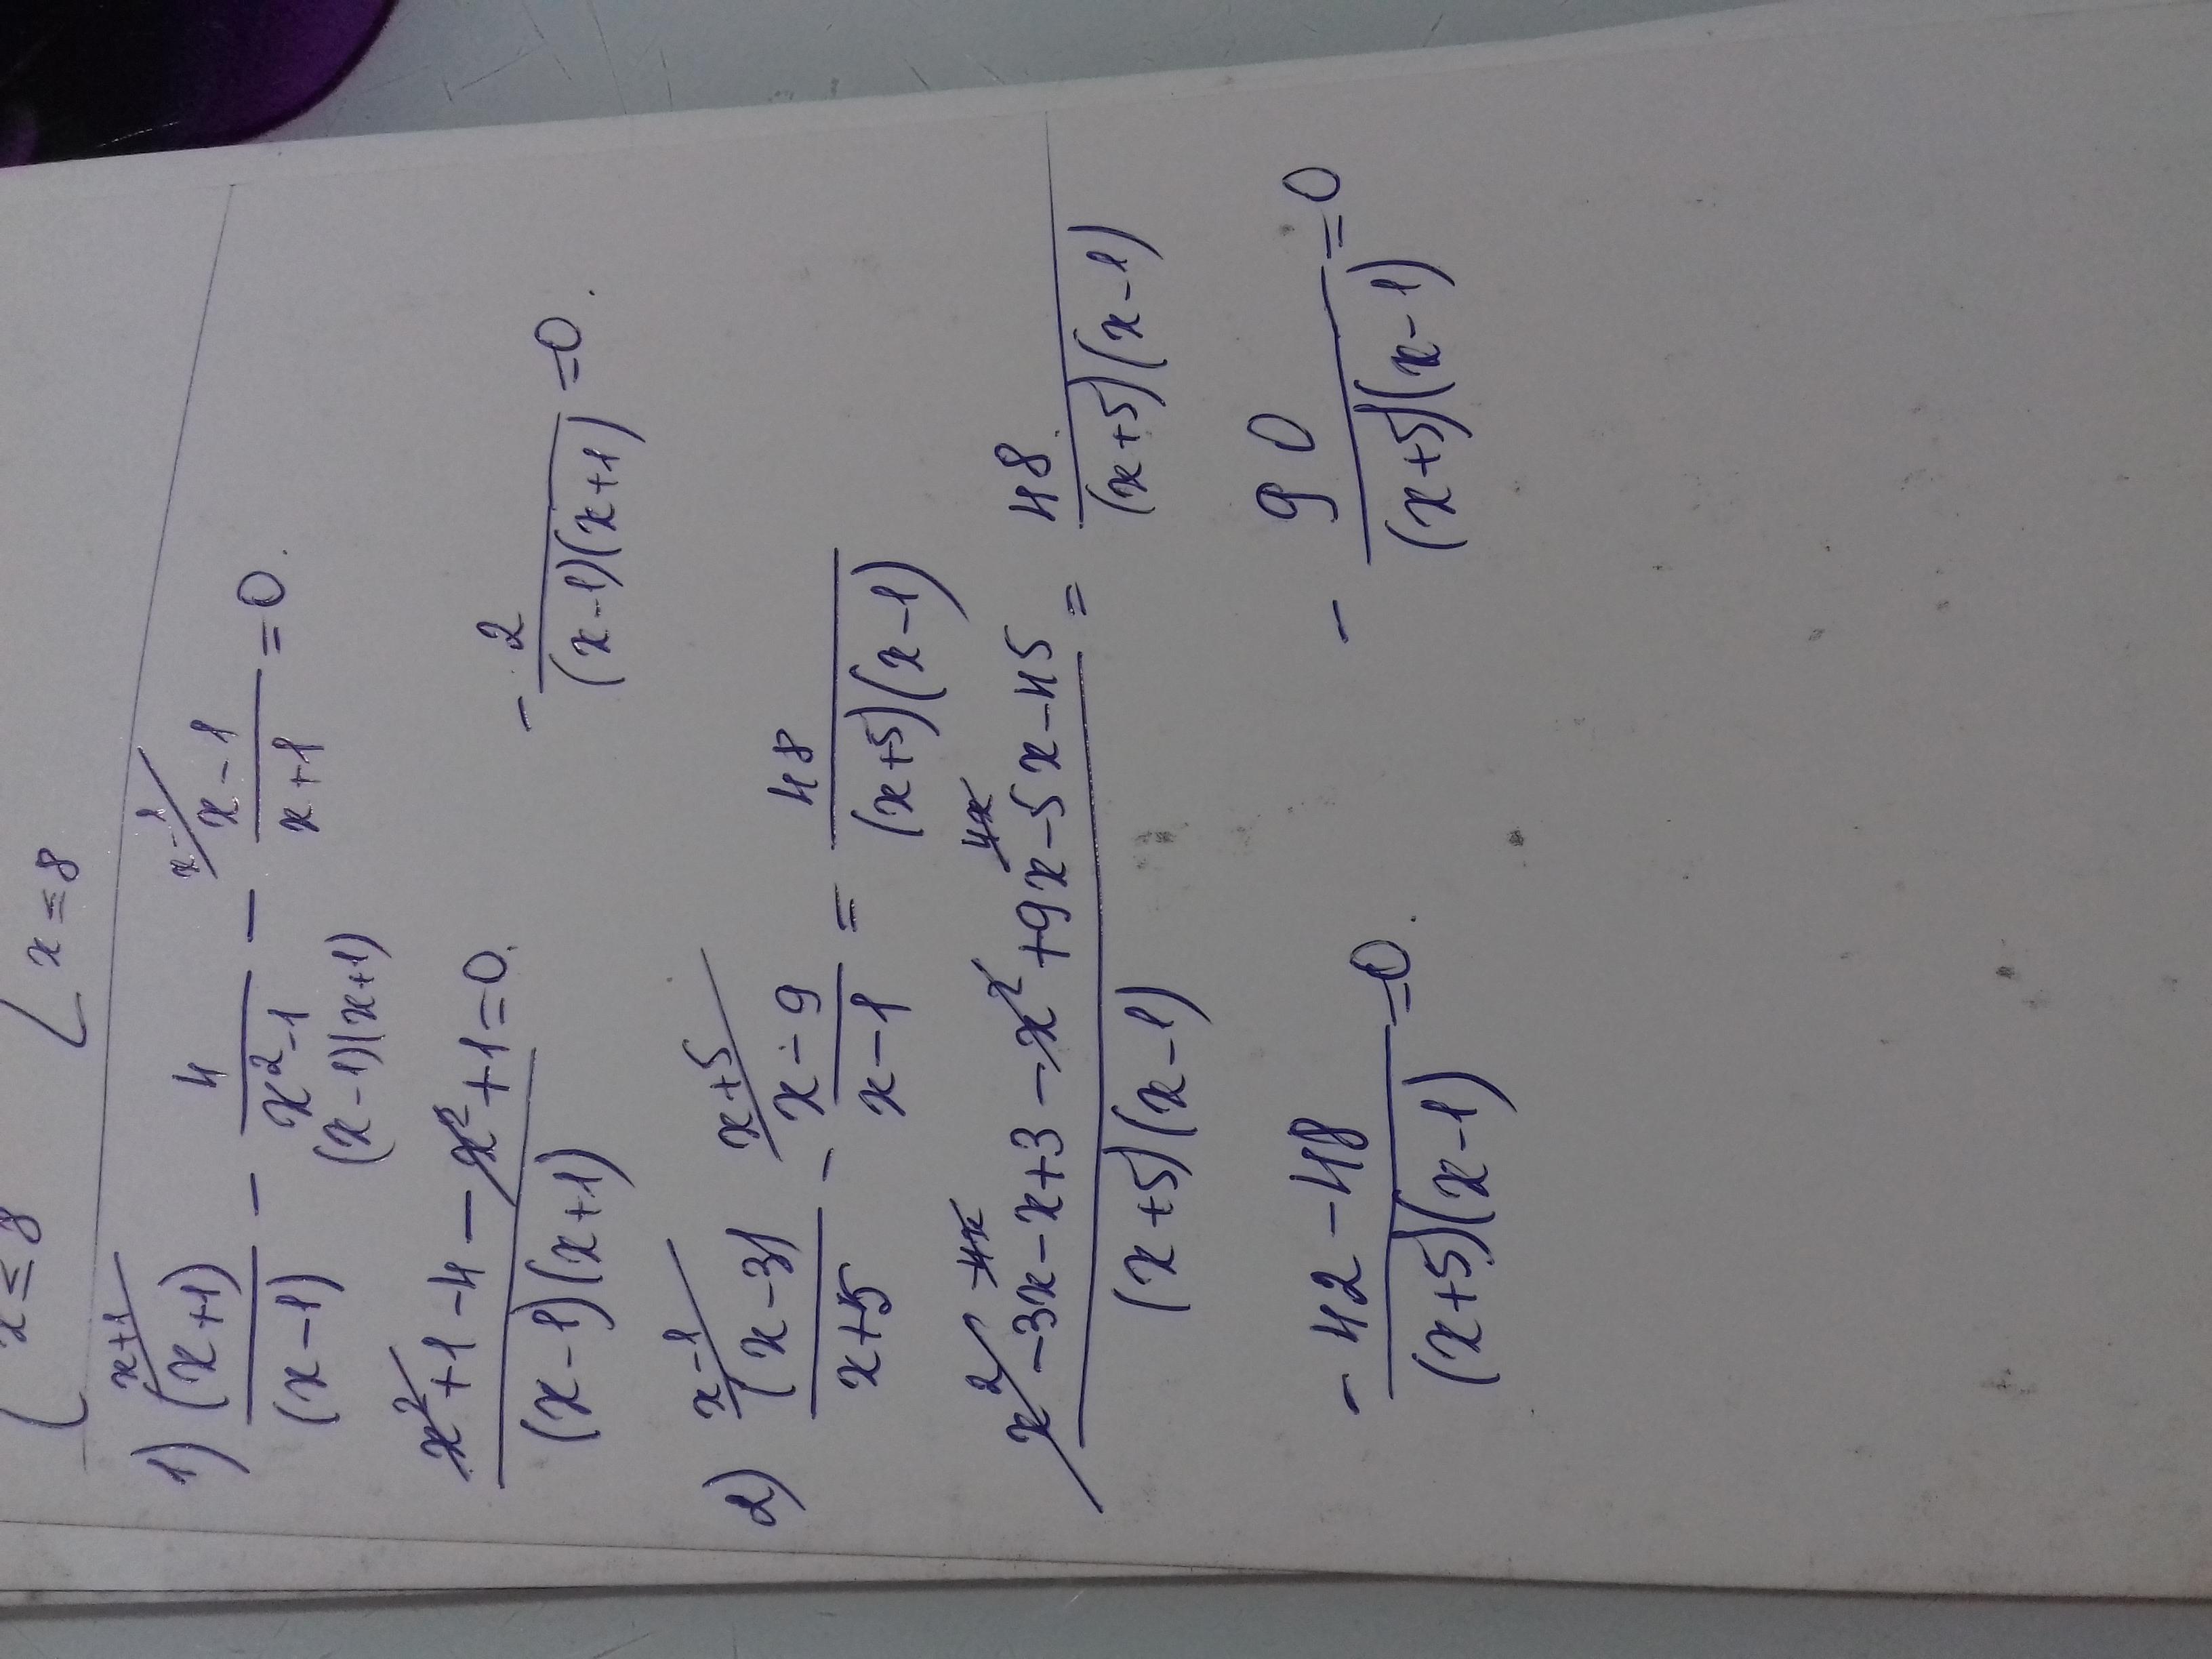 x ≤ 8 [ x = 8
x+1 x-1
1) (x+1)/(x-1) - 4/(x²-1) - (x-1)/(x+1) = 0.
(x-1)(x+1)
(x²+1-4-x²+1)/((x-1)(x+1)) = 0. -2/((x-1)(x+1)) = 0.
x-1 x+5
2) (x-3)/(x+5) - (x-9)/(x-1) = 48/((x+5)(x-1))
-4x 4x
(x²-3x-x+3-x²+9x-5x-45)/((x+5)(x-1)) = 48/((x+5)(x-1))
(-42-48)/((x+5)(x-1)) = 0. -90/((x+5)(x-1)) = 0